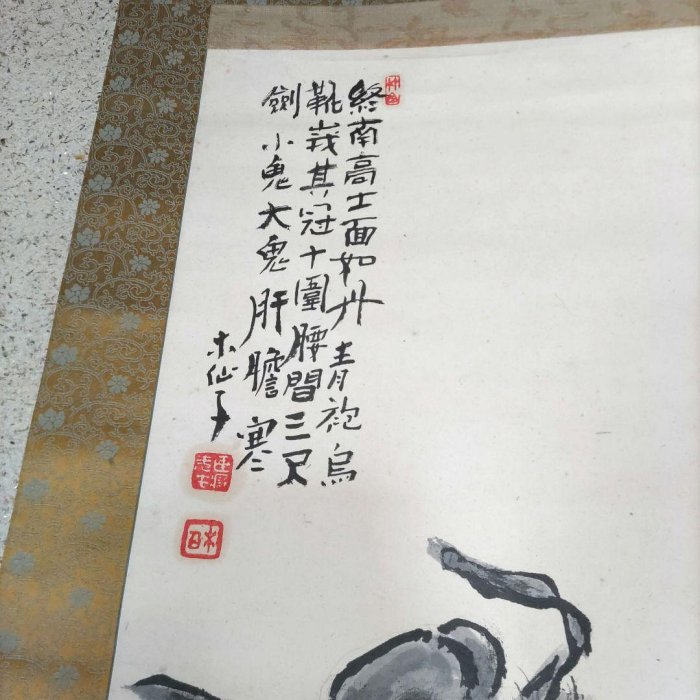 終南高士面如丹青袍烏
靴峩其冠十圍腰間三尺
劍小鬼大鬼肝膽寒
木仙子